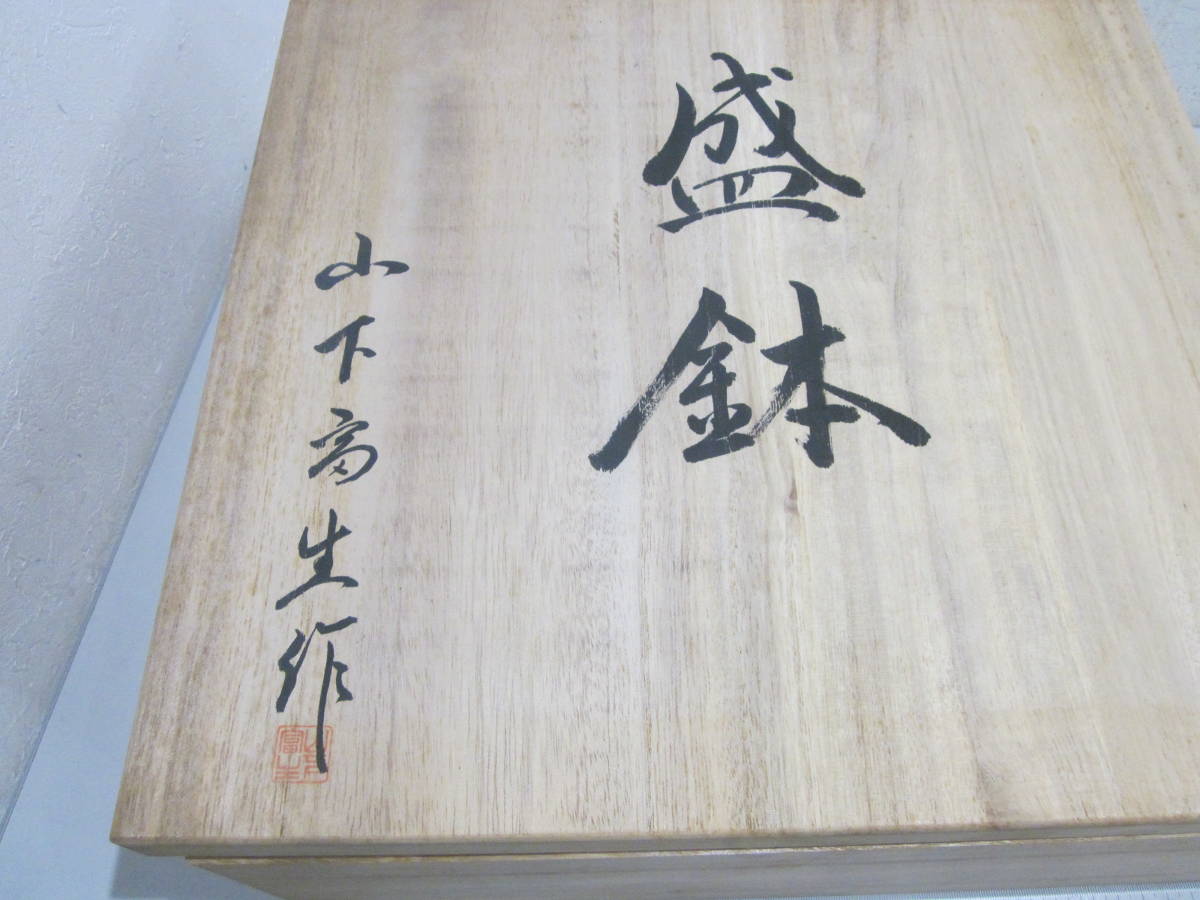 盛鉢
山下富生作